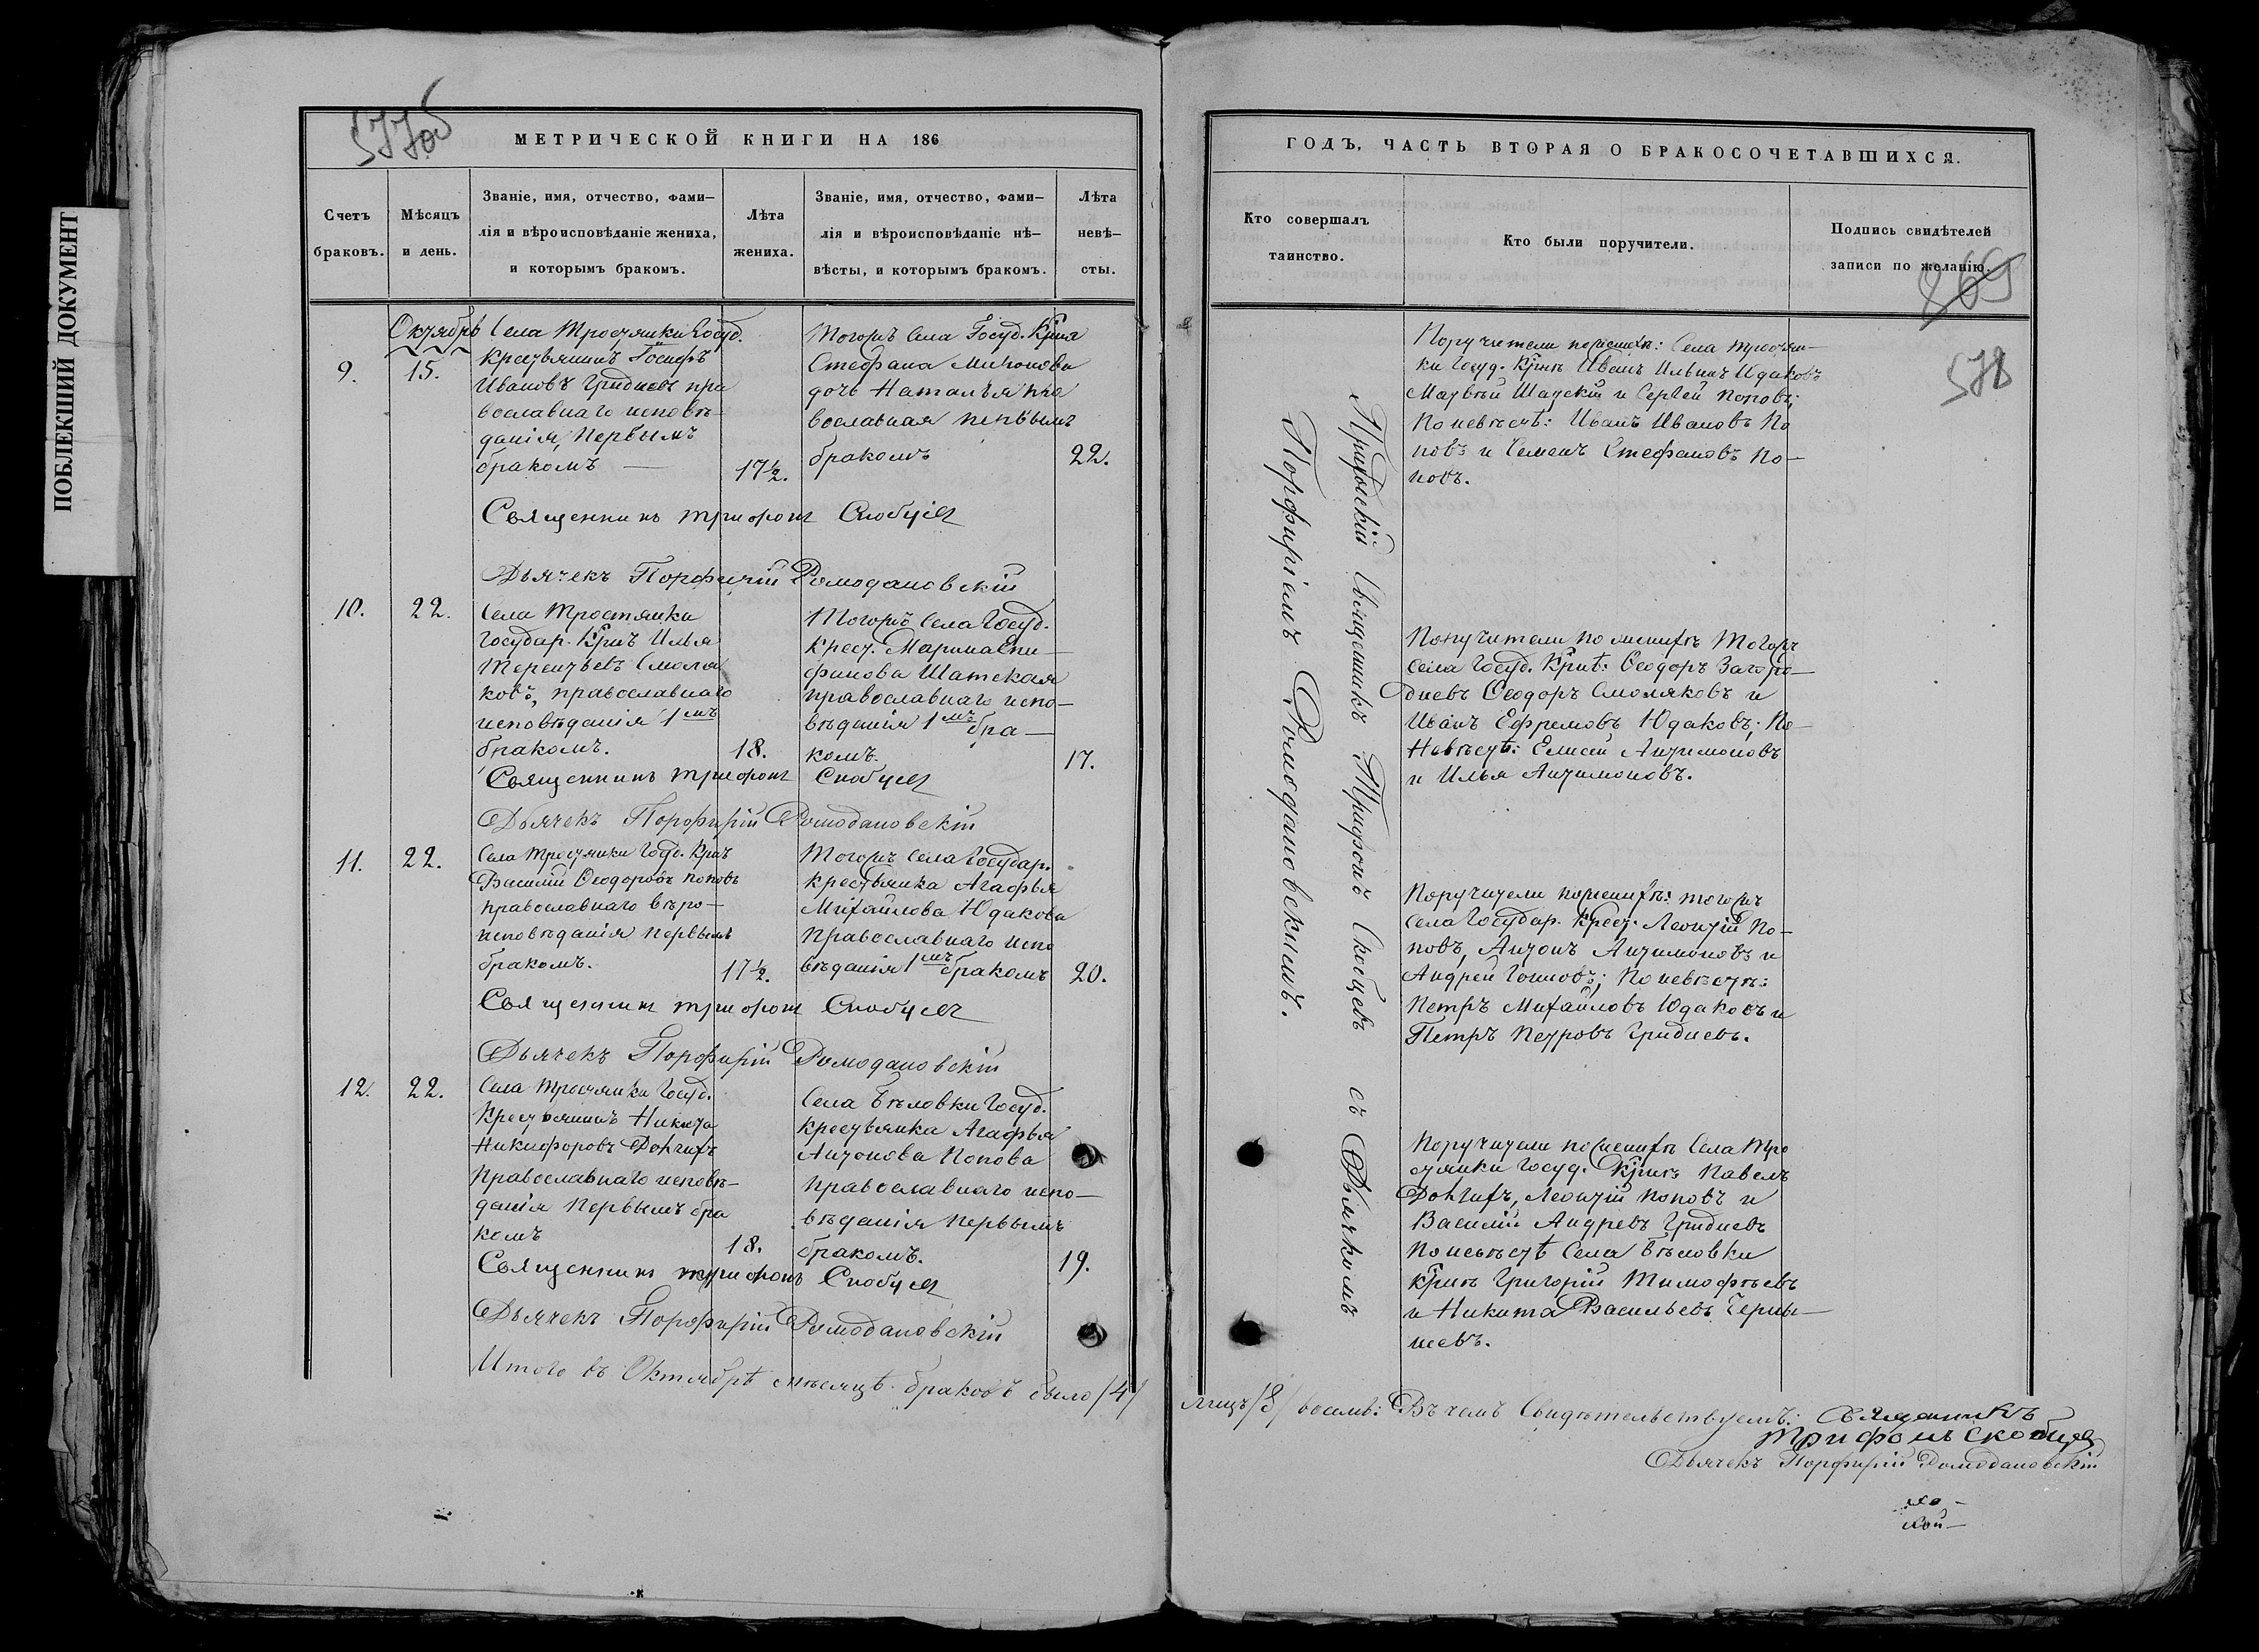 ПОБЛЕКШИЙ ДОКУМЕНТ
577об
МЕТРИЧЕСКОЙ КНИГИ НА 186
Счетъ браковъ.
Мѣсяцъ и день.
Званіе, имя, отчество, фами-
лія и вѣроисповѣданіе жениха,
и которымъ бракомъ.
Лѣта жениха.
Званіе, имя, отчество, фами-
лія и вѣроисповѣданіе нѣ-
вѣсты, и которымъ бракомъ.
Лѣта невѣ-
сты.
Октябрь
9.
15.
Села Тростянки Госуд.
крестьянинъ Іосифъ
Ивановъ Гридневъ пра
вославнаго исповѣ-
данія, первымъ
бракомъ —
17½.
Тогожъ Села Госуд. Крна
Стефана Миронова
дочь Наталья пра
вославная первымъ
бракомъ
22.
Священникъ Трифонъ Скобцев
Дьячекъ Порфирій Ромодановскій
10.
22.
Села Тростянки
Государ. Крнъ Илья
Терентьевъ Смоля
ковъ, православнаго
исповѣданія 1мъ
бракомъ.
18.
Тогожъ Села Госуд.
крест. Марина Спи-
финова Шатская
православнаго испо-
вѣданія 1мъ бра-
комъ.
17.
Священникъ Трифонъ Скобцев
Дьячекъ Порфирій Ромодановскій
11.
22.
Села Тростянки Госуд. Крнъ
Василій Ѳеодоровъ Поповъ
православнаго вѣро-
исповѣданія первымъ
бракомъ.
17½.
Тогожъ Села Государ.
крестьянка Агафья
Михайлова Юдакова
Православнаго испо
вѣданія 1мъ бракомъ
20.
Священникъ Трифонъ Скобцев
Дьячекъ Порфирій Ромодановскій
12.
22.
Села Тростянки Госуд.
Крестьянинъ Никита
Никифоровъ Долгихъ
Православнаго исповѣ-
данія первымъ бра
комъ
18.
Села Бѣловки Госуд.
крестьянка Агафья
Антонова Попова
православнаго испо-
вѣданія первымъ
бракомъ.
19.
Священникъ Трифонъ Скобцев
Дьячекъ Порфирій Ромодановскій
Итого въ Октябрѣ мѣсяцѣ браковъ было /4/
ГОДЪ, ЧАСТЬ ВТОРАЯ О БРАКОСОЧЕТАВШИХСЯ.
Кто совершалъ
таинство.
Кто были поручители.
Подпись свидѣтелей
записи по желанію.
869
578
Приходскій Священникъ Трифонъ Скобцевъ съ Дьячкомъ
Порфиріемъ Ромодановскимъ.
Поручители по женихѣ: Села Тростян-
ки Госуд. Крнъ Иванъ Ильинъ Юдаковъ
Матвѣй Шатскій и Сергей Поповъ;
По невѣстѣ: Иванъ Ивановъ По
повъ и Семенъ Стефановъ По-
повъ.
Поручители по женихѣ Тогожъ
села Госуд. Крнѣ: Ѳеодоръ Загоро-
дневъ Ѳеодоръ Смоляковъ и
Иванъ Ефремовъ Юдаковъ; По-
Невѣстѣ: Елисей Антимоновъ
и Илья Антимоновъ.
Поручители по женихѣ: тогожъ
села Государ. Крест. Леонтій По-
повъ, Антонъ Антимоновъ и
Андрей; По невѣстѣ:
Петръ Михайловъ Юдаковъ и
Петръ Петровъ Гридневъ.
Поручители по женихѣ Села Тро
стянки Госуд. Крнъ Павелъ
Долгихъ, Леонтій Поповъ и
Василій Андревъ Гридневъ
По невѣстѣ Села Бѣловки
Крнъ Григорій Тимофѣевъ
и Никита Васильевъ Черны-
шевъ.
лицъ /8/ восемь: Въ чемъ Свидѣтельствуемъ: Священникъ
Трифонъ Скобцев
Дьячекъ Порфирій Ромодановскій